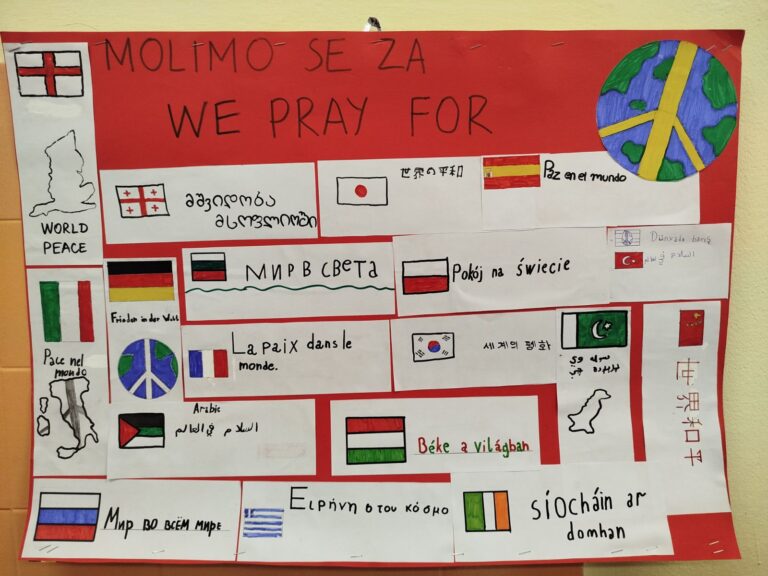 MOLIMO SE ZA
WE PRAY FOR
WORLD
PEACE
მშვიდობა
მსოფლიოში
世界の平和
Paz en el mundo
Dünyada barış
МИР В СВЕТА
Pokój na świecie
Frieden in der Welt
Pace nel
mondo
La paix dans le
monde.
세계의 평화
世界和平
Arabic
السلام في العالم
Béke a világban
Мир во всём мире
Ειρήνη στον κόσμο
síocháin ar
domhan